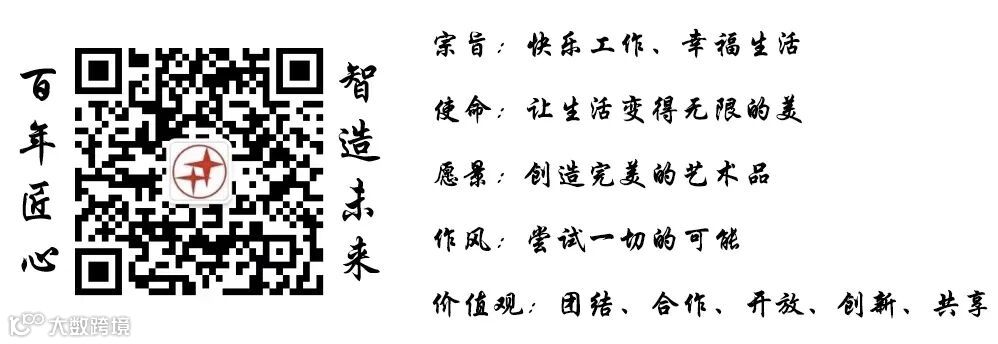 百年匠心
智造未来
宗旨：快乐工作、幸福生活
使命：让生活变得无限的美
愿景：创造完美的艺术品
作风：尝试一切的可能
价值观：团结、合作、开放、创新、共享
大数跨境